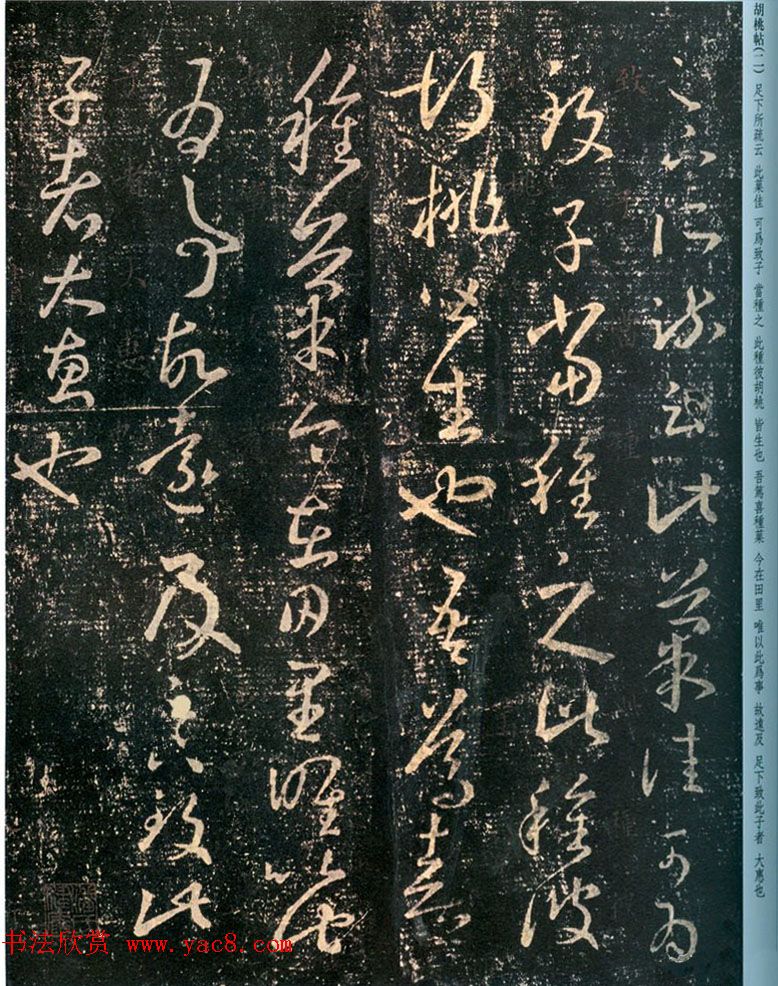 胡桃帖(二) 足下所疏云 此菓佳 可爲致子 當種之 此種彼胡桃 皆生也 吾篤喜種菓 今在田里 唯以此爲事 故遠及 足下致此子者 大惠也
足下所疏云此菓佳可爲
致子當種之此種彼
胡桃皆生也吾篤喜
種菓今在田里唯以此
爲事故遠及足下致此
子者大惠也
书法欣赏 www.yac8.com